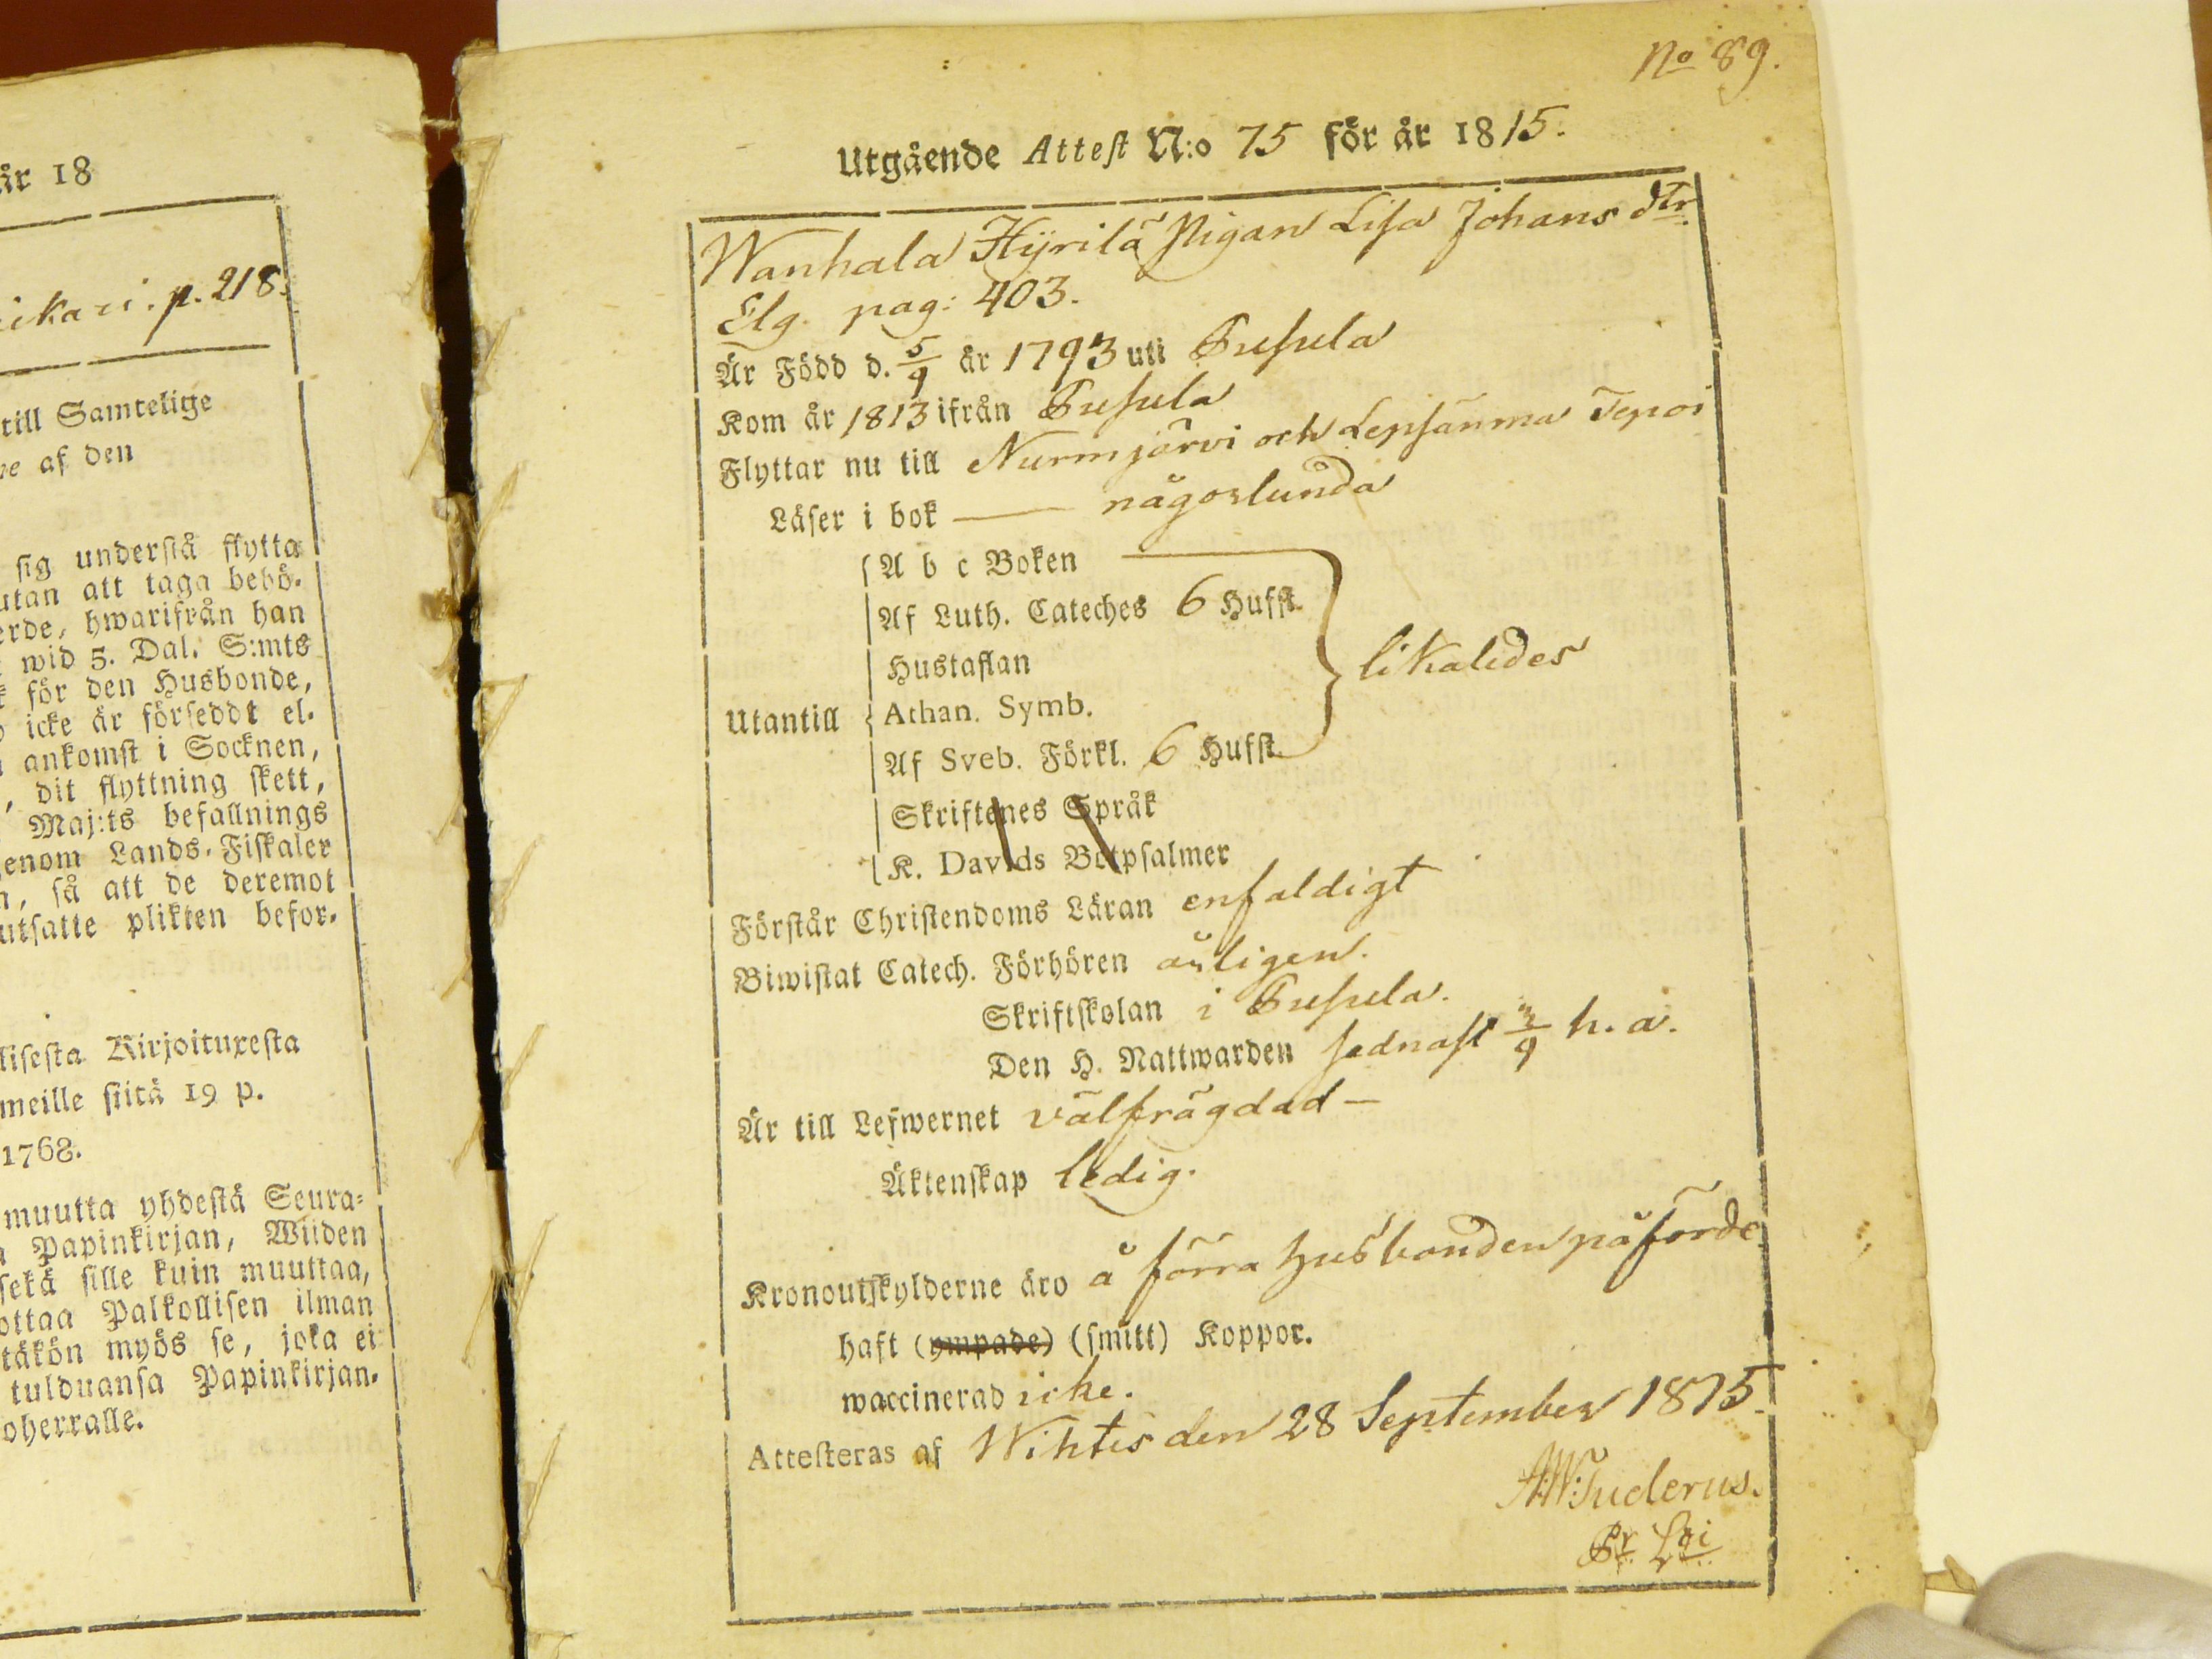 år 18
ikari. p. 218.
till Samtelige
af den
sig understå flytta
utan att taga behö-
erde, hwarifrån han
wid 5. Dal. S:mts
för den Husbonde,
icke är förseddt el-
ankomst i Socknen,
, dit flyttning skett,
Maj:ts befallnings
genom Lands-Fiskaler
, så att de deremot
utsatte plikten befor-
lisesta Kirjoituxesta
meille siitä 19 p.
1768.
muutta yhdestä Seura-
Papinkirjan, Wiiden
sekä sille kuin muuttaa,
ottaa Palkollisen ilman
täkön myös se, joka ei
tulduansa Papinkirjan-
oherralle.
No 89.
Utgående Attest N:o 75 för år 1815.
Wanhala Hyrilä Pigan Lisa Johans dtr.
Elg. pag: 403.
Är Född d. 5/9 år 1793 uti Tusula
Kom år 1813 ifrån Tusula
Flyttar nu till Nurmjärvi och Lepsänma Tepoi
Läser i bok — någorlunda
A b c Boken
Af Luth. Cateches 6 Hufst.
Hustaflan
likaledes
Utantill Athan. Symb.
Af Sveb. Förkl. 6 Hufst.
Skriftenes Språk
K. Davids Botpsalmer
Förstår Christendoms Läran enfaldigt
Biwistat Catech. Förhören årligen.
Skriftskolan i Tusula.
Den H. Nattwarden sednast 3/9 h. a.
Är till Lefwernet välfrägdad —
Äktenskap ledig.
Kronoutskylderne äro å förra husbonden påförde
haft (ympade) (smitt) Koppor.
waccinerad icke.
Attesteras af Wihtis den 28 September 1815.
A.W: Tuderus.
Pr. Loci